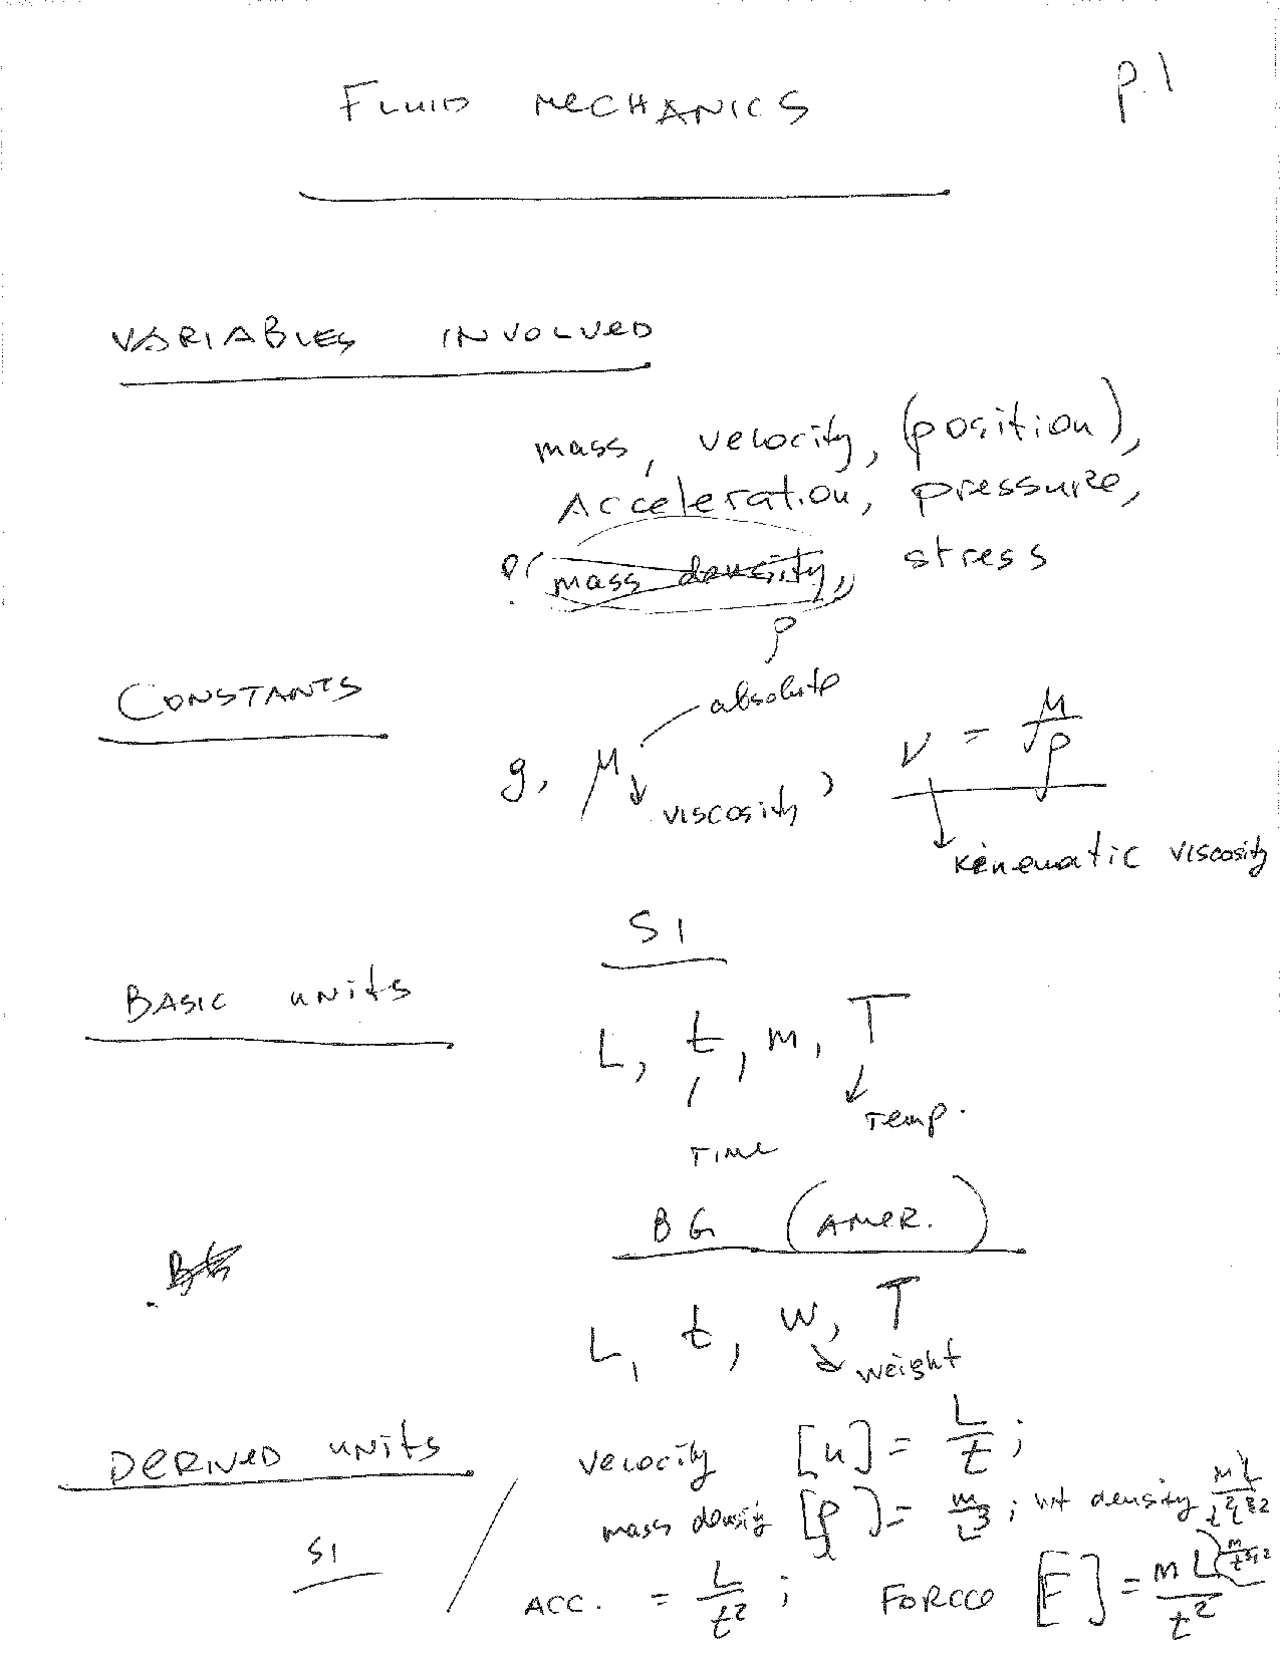 p.1
FLUID MECHANICS
VARIABLES INVOLVED
mass, velocity, (position),
Acceleration, pressure,
mass density, stress
ρ
CONSTANTS
absolute
g, μ, ν = μ/ρ
viscosity
kinematic viscosity
SI
BASIC UNITS
L, t, m, T
Temp.
TIME
BG (AMER.)
L, t, w, T
weight
DERIVED UNITS
velocity [u] = L/t ;
mass density [ρ] = m/L³ ; wt density
SI
ACC. = L/t² ; FORCE [F] = mL/t²